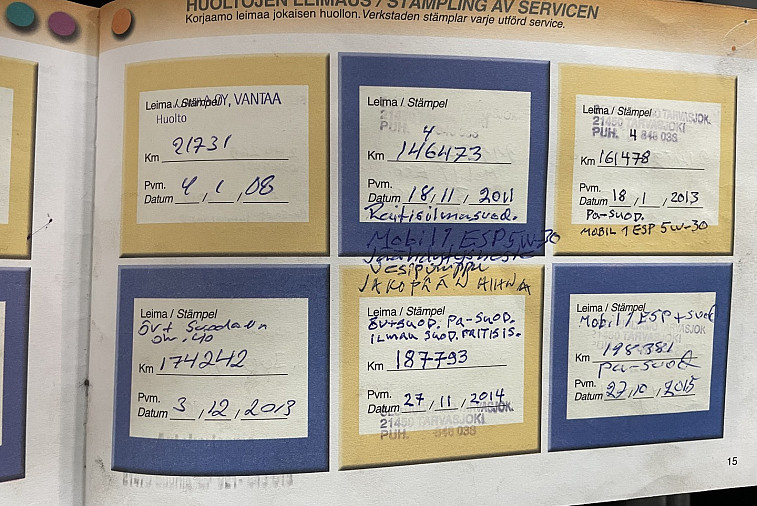 HUOLTOJEN LEIMAUS / STÄMPLING AV SERVICEN
Korjaamo leimaa jokaisen huollon. Verkstaden stämplar varje utförd service.
Leima / Stämpel OY, VANTAA
Huolto
Km 21731
Pvm.
Datum 4, 1, 08
Leima / Stämpel
PUH. 4
Km 146473
Pvm.
Datum 18, 11, 2011
Raitisilmasuod.
Mobil 1 ESP 5W-30
Jäähdytysneste
Vesipumppu
JAKOPÄÄN HIHNA
Leima / Stämpel TARVASJOK.
21450 TARVASJOKI
PUH. 4 848 038
Km 161478
Pvm.
Datum 18, 1, 2013
Pa-suod.
MOBIL 1 ESP 5W-30
Leima / Stämpel
Öv+ Suodatin
5W-40
Km 174242
Pvm.
Datum 3, 12, 2013
Leima / Stämpel
Öv+suod. Pa-suod.
ilman suod. raitisis.
Km 187793
Pvm.
Datum 27, 11, 2014
TARVASJOK.
21450 TARVASJOKI
PUH. 848 038
Leima / Stämpel
Mobil 1 ESP + suod
Km 198381
pa-suod
Pvm.
Datum 27, 10, 2015
15